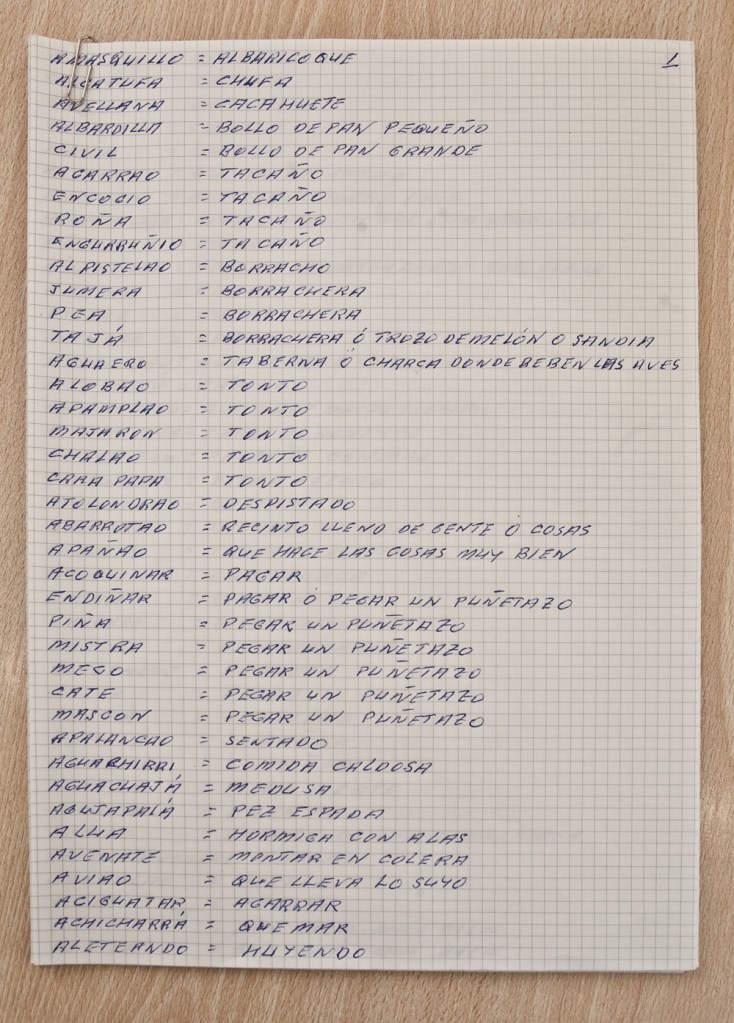 1
AMASQUILLO = ALBARICOQUE
ALCATUFA = CHUFA
AVELLANA = CACAHUETE
ALBARDILLA = BOLLO DE PAN PEQUEÑO
CIVIL = BOLLO DE PAN GRANDE
AGARRAO = TACAÑO
ENCOGIO = TACAÑO
ROÑA = TACAÑO
ENGURRUÑIO = TACAÑO
ALPISTELAO = BORRACHO
JUMERA = BORRACHERA
PEA = BORRACHERA
TAJÁ = BORRACHERA Ó TROZO DE MELÓN O SANDIA
AGUAERO = TABERNA Ó CHARCA DONDE BEBEN LAS AVES
ALOBAO = TONTO
APAMPLAO = TONTO
MAJARON = TONTO
CHALAO = TONTO
CARA PAPA = TONTO
ATOLONDRAO = DESPISTADO
ABARROTAO = RECINTO LLENO DE GENTE O COSAS
APAÑAO = QUE HACE LAS COSAS MUY BIEN
ACOQUINAR = PAGAR
ENDIÑAR = PAGAR Ó PEGAR UN PUÑETAZO
PIÑA = PEGAR UN PUÑETAZO
MISTRA = PEGAR UN PUÑETAZO
MECO = PEGAR UN PUÑETAZO
CATE = PEGAR UN PUÑETAZO
MASCON = PEGAR UN PUÑETAZO
APALANCAO = SENTADO
AGUACHIRRI = COMIDA CALDOSA
AGUACUAJÁ = MEDUSA
AGUJAPALÁ = PEZ ESPADA
ALUA = HORMIGA CON ALAS
AVENATE = MONTAR EN COLERA
AVIAO = QUE LLEVA LO SUYO
ACIGUATAR = AGARRAR
ACHICHARRÁ = QUEMAR
ALETEANDO = HUYENDO